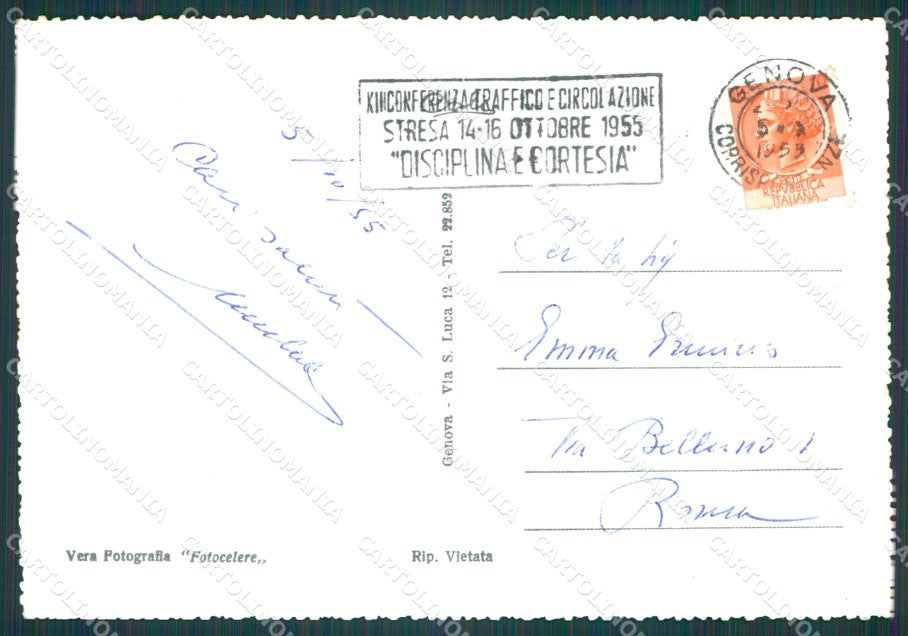 XII CONFERENZA TRAFFICO E CIRCOLAZIONE
STRESA 14-16 OTTOBRE 1955
"DISCIPLINA E CORTESIA"
GENOVA
1955
CORRISP
NZE
REPUBBLICA
ITALIANA
5/10/55
Cari saluti
Genova - Via S. Luca 12 - Tel. 22.852
Emma
Via Belluno 1
Roma
Vera Fotografia "Fotocelere„
Rip. Vietata
CARTOLINOMANIA